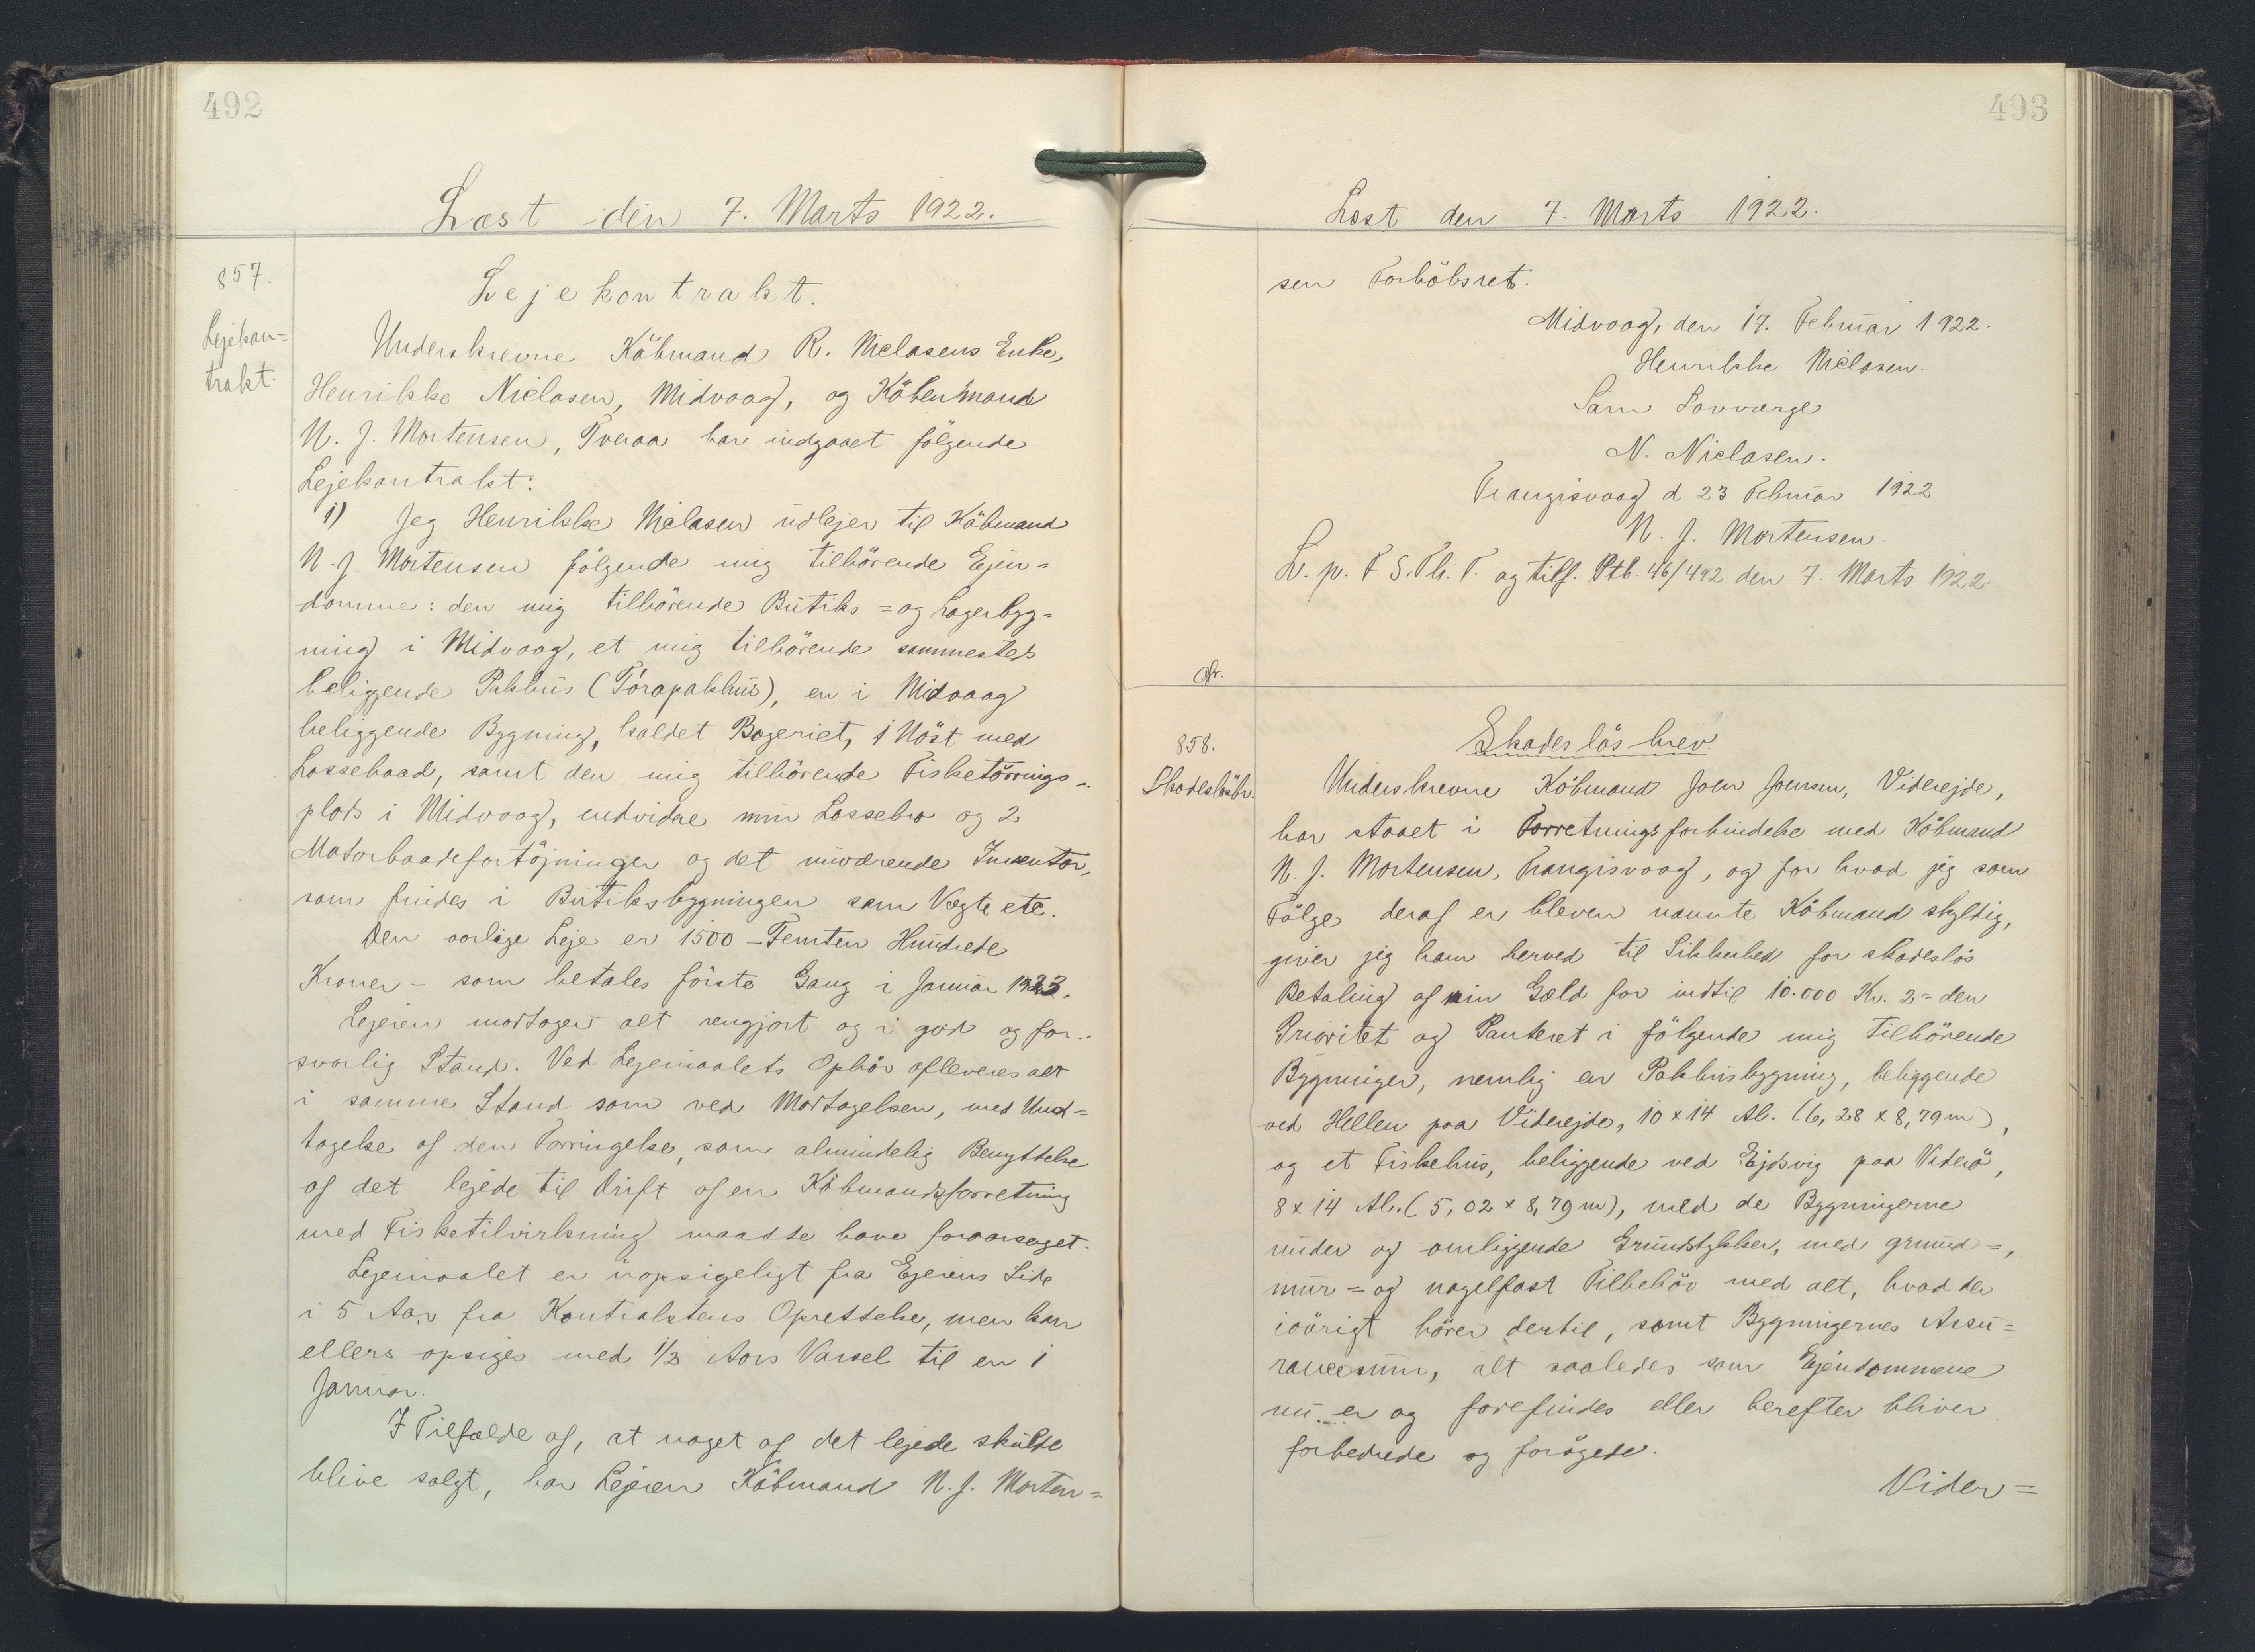 492
Læst den 7. Marts 1922.
857.
Lejekon=
trakt.
Lejekontrakt.
Underskrevne Köbmand R. Niclasens Enke,
Henrikke Niclasen, Midvaag, og Köbenmand
N. J. Mortensen, Tveraa har indgaaet fölgende
Lejekontrakt:
1) Jeg Henrikke Niclasen udlejer til Köbmand
N. J. Mortensen fölgende mig tilhörende Ejen=
domme: den mig tilhörende Butiks= og Lagerbyg=
ning i Midvaag, et mig tilhörende sammesteds
beliggende Pakhus (Tórapakhus), en i Midvaag
beliggende Bygning, kaldet Bageriet, 1 Nöst med
Lossebaad, samt den mig tilhörende Fisketörrings=
plads i Midvaag, endvidere min Lossebro og 2
Motorbaadefortöjninger og det nuværende Inventar,
som findes i Butiksbygningen som Vægte etc.
Den aarlige Leje er 1500 – Femten Hundrede
Kroner – som betales förste Gang i Januar 1923.
Lejeren modtager alt rengjort og i god og for=
svarlig Stand. Ved Lejemaalets Ophör afleveres alt
i samme Stand som ved Modtagelsen, med Und=
tagelse af den Forringelse, som almindelig Benyttelse
af det lejede til Drift af en Köbmandsforretning
med Fisketilvirkning maatte have foraarsaget.
Lejemaalet er uopsigeligt fra Ejerens Side
i 5 Aar fra Kontraktens Oprettelse, men kan
ellers opsiges med 1/2 Aars Varsel til en 1
Januar.
I Tilfælde af, at noget af det lejede skulde
blive solgt, har Lejeren Köbmand N. J. Morten=
493
Læst den 7. Marts 1922.
sen Forköbsret.
Midvaag, den 17. Februar 1922.
Henrikke Niclasen.
Som Lavværge
N. Niclasen.
Trangisvaag d 23 Februar 1922
N. J. Mortensen
L. p. F. S. Th. T. og tilf. Ptb. 46/492 den 7. Marts 1922.
Afr.
858.
Skadeslösbr.
Skadeslösbrev.
Underskrevne Köbmand Joen Joensen, Viderejde,
har staaet i Forretningsforbindelse med Köbmand
N. J. Mortensen, Trangisvaag, og for hvad jeg som
Fölge deraf er bleven nævnte Köbmand skyldig,
giver jeg ham herved til Sikkerhed for skadeslös
Betaling af min Gæld for indtil 10.000 Kr. 2=den
Prioritet og Panteret i fölgende mig tilhörende
Bygninger, nemlig en Pakhusbygning, beliggende
ved Hellen paa Viderejde, 10 x 14 Al. (6,28 x 8,79 m),
og et Fiskehus, beliggende ved Ejdsvig paa Viderö,
8 x 14 Al. (5,02 x 8,79 m), med de Bygningerne
under og omliggende Grundstykker, med grund=,
mur= og nagelfast Tilbehör med alt, hvad der
iövrigt hörer dertil, samt Bygningernes Assu=
rancesum, alt saaledes som Ejendommene
nu er og forefindes eller herefter bliver
forbedrede og forögede.
Vider=